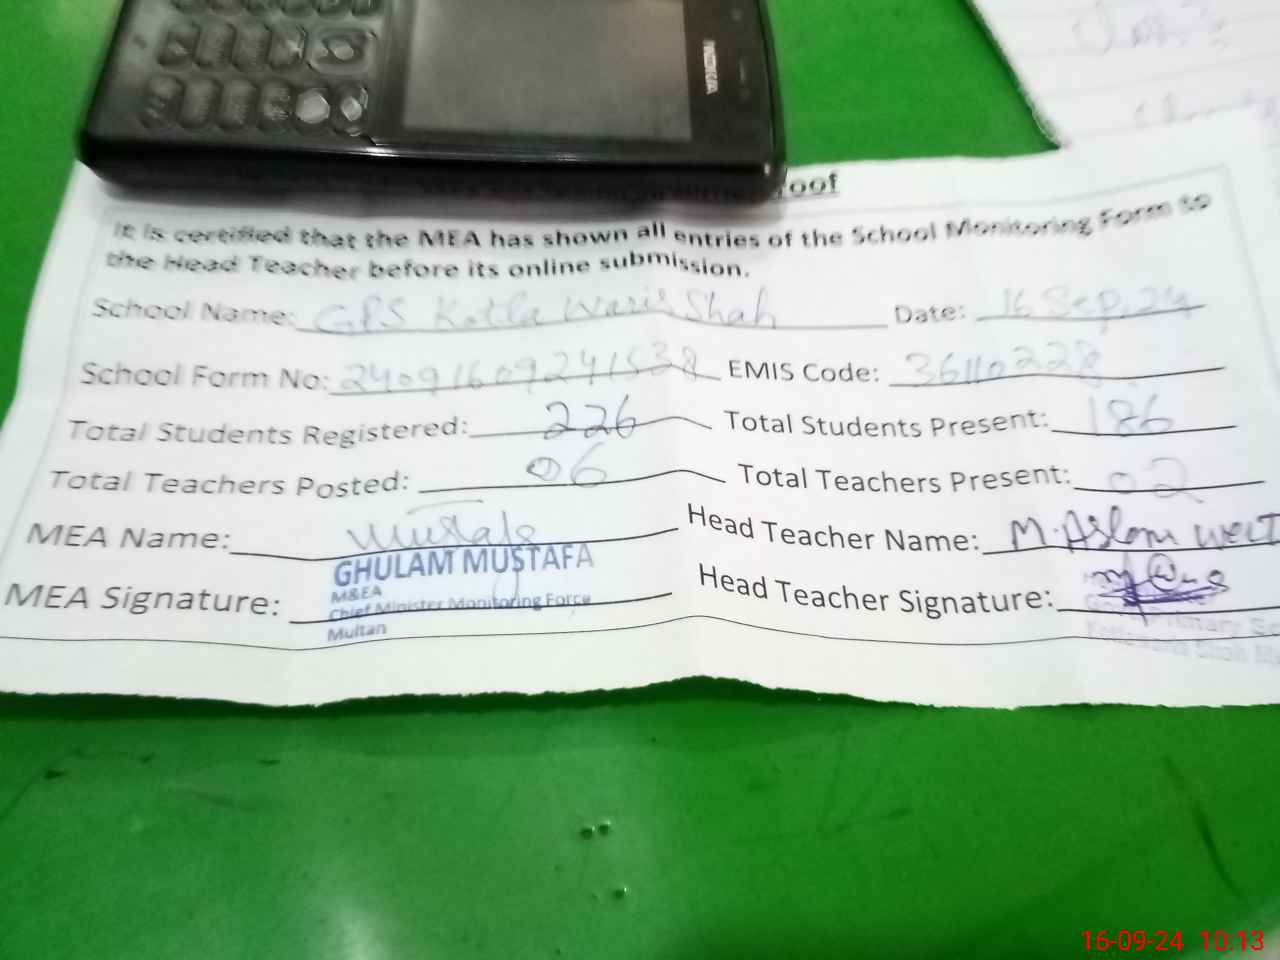 NOKIA
roof
It is certified that the MEA has shown all entries of the School Monitoring Form to
the Head Teacher before its online submission.
School Name: GPS Kotla Waris Shah Date: 16 Sep, 24
School Form No: 24091609241538 EMIS Code: 36110228
Total Students Registered: 226 Total Students Present: 186
Total Teachers Posted: 06 Total Teachers Present: 02
MEA Name: Mustafa Head Teacher Name: M. Aslam
GHULAM MUSTAFA
M&EA
Chief Minister Monitoring Force
Multan
MEA Signature: Head Teacher Signature:
Primary
Shah
16-09-24 10:13